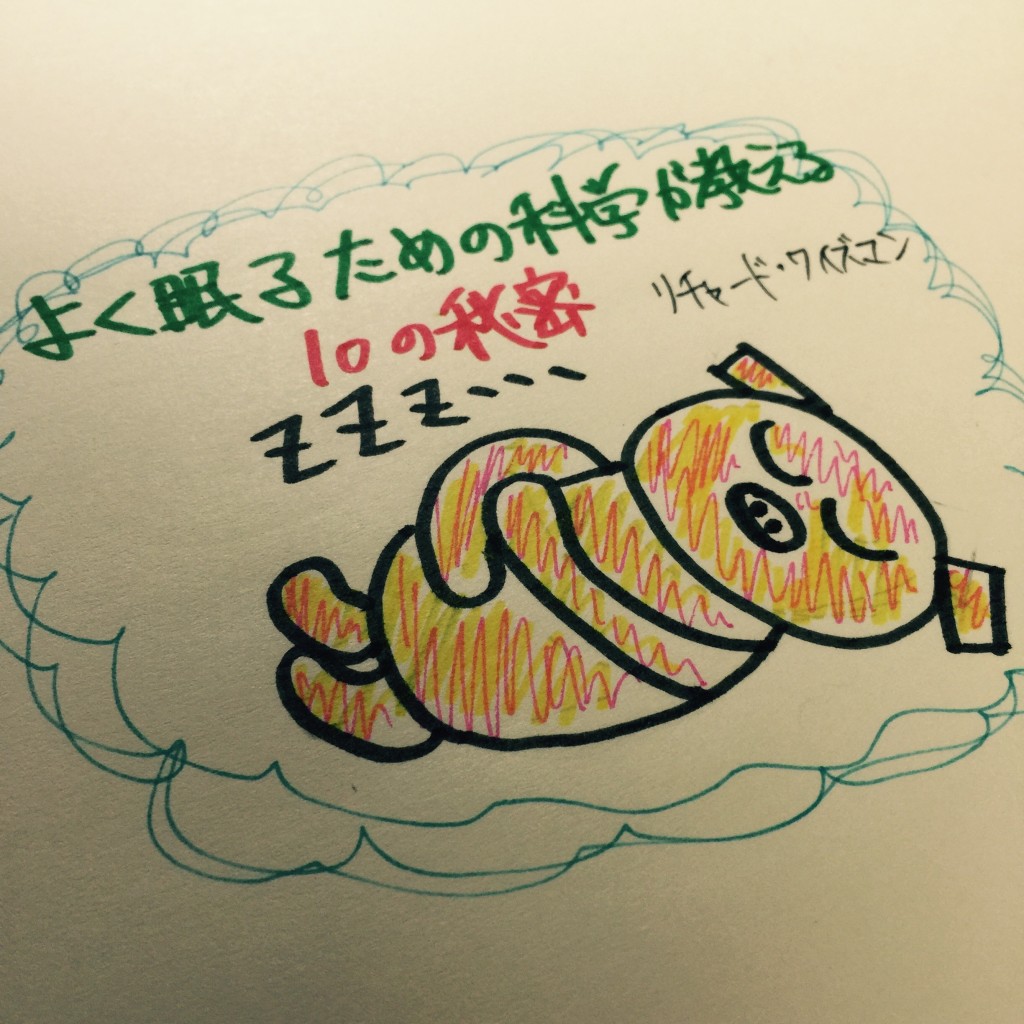 よく眠るための科学が教える
10の秘密
リチャード・ワイズマン
zzz...